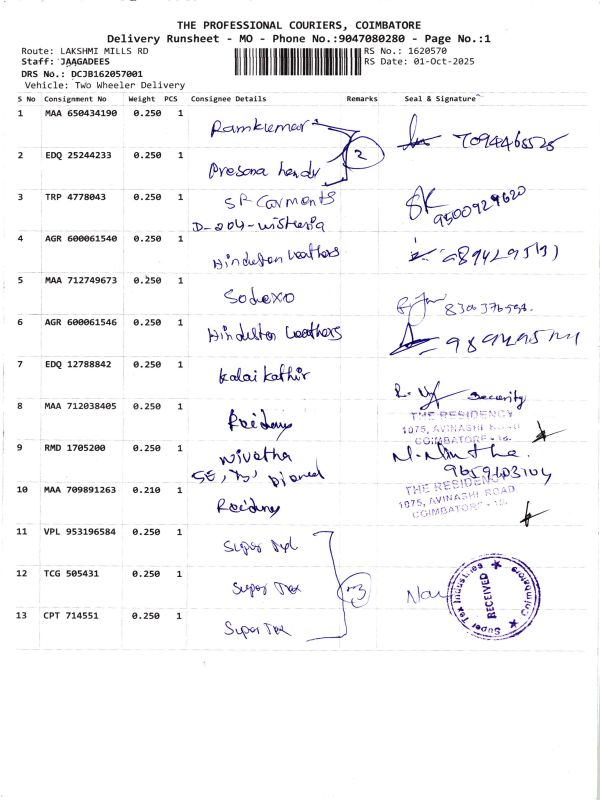 THE PROFESSIONAL COURIERS, COIMBATORE
Delivery Runsheet - MO - Phone No.:9047080280 - Page No.:1
Route: LAKSHMI MILLS RD RS No.: 1620570
Staff: JAAGADEES RS Date: 01-Oct-2025
DRS No.: DCJB162057001
Vehicle: Two Wheeler Delivery
S No Consignment No Weight PCS Consignee Details Remarks Seal & Signature
1 MAA 650434190 0.250 1 Ramkumar 7094465525
2 EDQ 25244233 0.250 1 2
3 TRP 4778043 0.250 1 SP Garments SK 9500929620
D-204-Wisteria
4 AGR 600061540 0.250 1
5 MAA 712749673 0.250 1 Sodexo
6 AGR 600061546 0.250 1
7 EDQ 12788842 0.250 1 Kalai kathir Security
8 MAA 712038405 0.250 1 THE RESIDENCY
1075, AVINASHI ROAD
COIMBATORE - 18.
9 RMD 1705200 0.250 1 Nivetha 9659403104
10 MAA 709891263 0.210 1 THE RESIDENCY
1075, AVINASHI ROAD
COIMBATORE - 18.
11 VPL 953196584 0.250 1 Super Tex
12 TCG 505431 0.250 1 Super Tex 3
13 CPT 714551 0.250 1 Super Tex
Super Tex Industries Coimbatore
RECEIVED